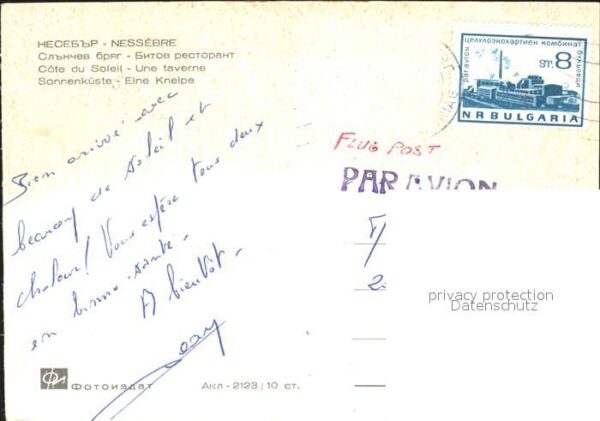 НЕСЕБЪР - NESSÈBRE
Слънчев бряг - Битов ресторант
Côte du Soleil - Une taverne
Sonnenküste - Eine Kneipe
par avion
целулознохартиен комбинат
ст. 8
NR BULGARIA
Bien arrivé avec
beaucoup de soleil et
chaleur! Vous espère tous deux
en bonne santé.
A bientôt.
FLUG POST
PAR AVION
privacy protection
Datenschutz
Фотоиздат
Акл - 2123 / 10 ст.